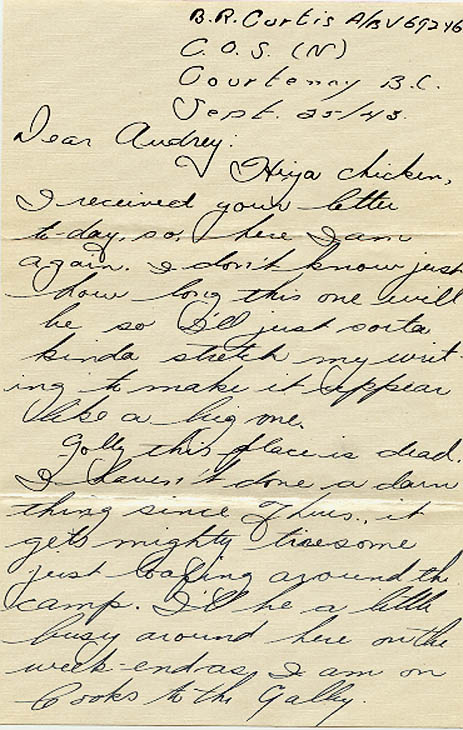 B.R. Curtis A/B V69246
C.O.S. (N)
Courtenay B.C.
Sept. 25/43.
Dear Audrey:
Hiya chicken,
I received your letter
to-day, so, here I am
again. I don't know just
how long this one will
be so I'll just sorta
kinda stretch my writ
ing to make it appear
like a big one.
Golly this place is dead.
I haven't done a darn
thing since Thurs., it
gets mighty tiresome
just loafing around the
camp. I'll be a little
busy around here on the
week-end as I am on
Cooks to the Galley.